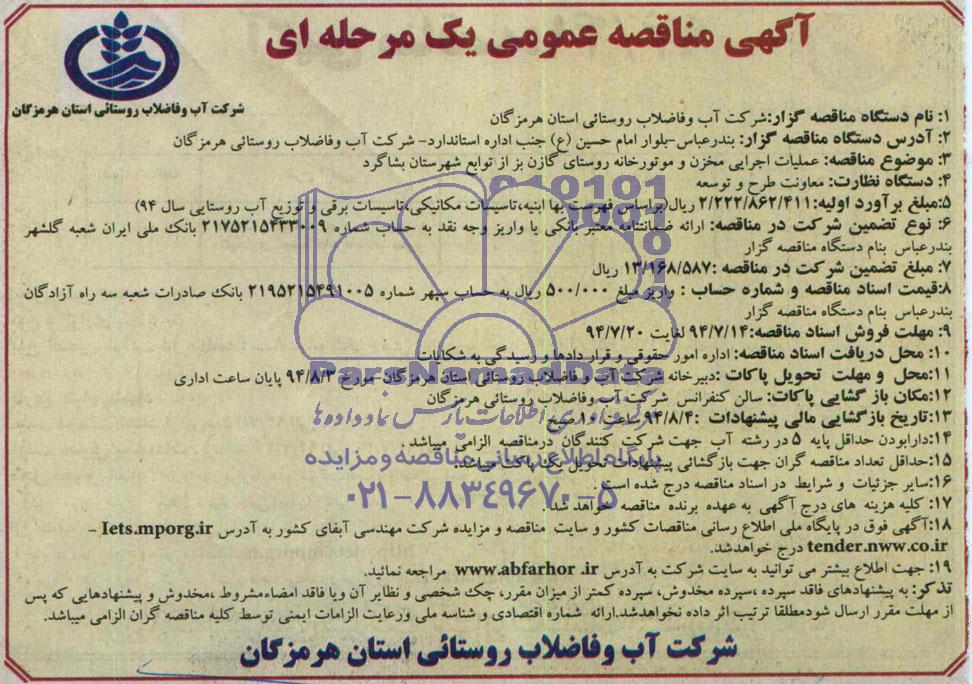 آگهی مناقصه عمومی یک مرحله ای
شرکت آب وفاضلاب روستائی استان هرمزگان
۱: نام دستگاه مناقصه گزار:شرکت آب وفاضلاب روستائی استان هرمزگان
۲: آدرس دستگاه مناقصه گزار: بندرعباس-بلوار امام حسین (ع) جنب اداره استاندارد- شرکت آب وفاضلاب روستائی هرمزگان
۳: موضوع مناقصه: عملیات اجرایی مخزن و موتورخانه روستای گازن بز از توابع شهرستان بشاگرد
۴: دستگاه نظارت: معاونت طرح و توسعه
۵:مبلغ برآورد اولیه:۲/۲۲۲/۸۶۲/۴۱۱ ریال(براساس فهرست بها ابنیه،تاسیسات مکانیکی،تاسیسات برقی و توزیع آب روستایی سال ۹۴)
۶: نوع تضمین شرکت در مناقصه: ارائه ضمانتنامه معتبر بانکی یا واریز وجه نقد به حساب شماره ۲۱۷۵۲۱۵۴۳۳۰۰۹ بانک ملی ایران شعبه گلشهر
بندرعباس بنام دستگاه مناقصه گزار
۷: مبلغ تضمین شرکت در مناقصه :۱۳/۱۶۸/۵۸۷ ریال
۸:قیمت اسناد مناقصه و شماره حساب : واریز مبلغ ۵۰۰/۰۰۰ ریال به حساب سپهر شماره ۲۱۹۵۲۱۵۴۹۱۰۰۵ بانک صادرات شعبه سه راه آزادگان
بندرعباس بنام دستگاه مناقصه گزار
۹: مهلت فروش اسناد مناقصه:۹۴/۷/۱۴ لغایت ۹۴/۷/۲۰
۱۰: محل دریافت اسناد مناقصه: اداره امور حقوقی و قرار دادها و رسیدگی به شکایات
۱۱:محل و مهلت تحویل پاکات :دبیرخانه شرکت آب و فاضلاب روستائی استان هرمزگان-مورخ ۹۴/۸/۳ پایان ساعت اداری
۱۲:مکان باز گشایی پاکات: سالن کنفرانس شرکت آب وفاضلاب روستائی هرمزگان
۱۳:تاریخ بازگشایی مالی پیشنهادات :۹۴/۸/۴ ساعت ۱۰ صبح
۱۴:دارابودن حداقل پایه ۵ در رشته آب جهت شرکت کنندگان درمناقصه الزامی میباشد .
۱۵:حداقل تعداد مناقصه گران جهت بازگشائی پیشنهادات تحویل یک پاکت میباشد.
۱۶:سایر جزئیات و شرایط در اسناد مناقصه درج شده است .
۱۷: کلیه هزینه های درج آگهی به عهده برنده مناقصه خواهد شد.
۱۸:آگهی فوق در پایگاه ملی اطلاع رسانی مناقصات کشور و سایت مناقصه و مزایده شرکت مهندسی آبفای کشور به آدرس Iets.mporg.ir -
tender.nww.co.ir درج خواهدشد.
۱۹: جهت اطلاع بیشتر می توانید به سایت شرکت به آدرس www.abfarhor .ir مراجعه نمائید.
تذکر: به پیشنهادهای فاقد سپرده ،سپرده مخدوش، سپرده کمتر از میزان مقرر، چک شخصی و نظایر آن ویا فاقد امضاء،مشروط ،مخدوش و پیشنهادهایی که پس
از مهلت مقرر ارسال شودمطلقا ترتیب اثر داده نخواهدشد.ارائه شماره اقتصادی و شناسه ملی ورعایت الزامات ایمنی توسط کلیه مناقصه گران الزامی میباشد.
شرکت آب وفاضلاب روستائی استان هرمزگان
ParsNamadData
مرکز فرآوری اطلاعات پارس نماد داده ها
پایگاه اطلاع رسانی مناقصه و مزایده
۰۲۱-۸۸۳۴۹۶۷۰-۵